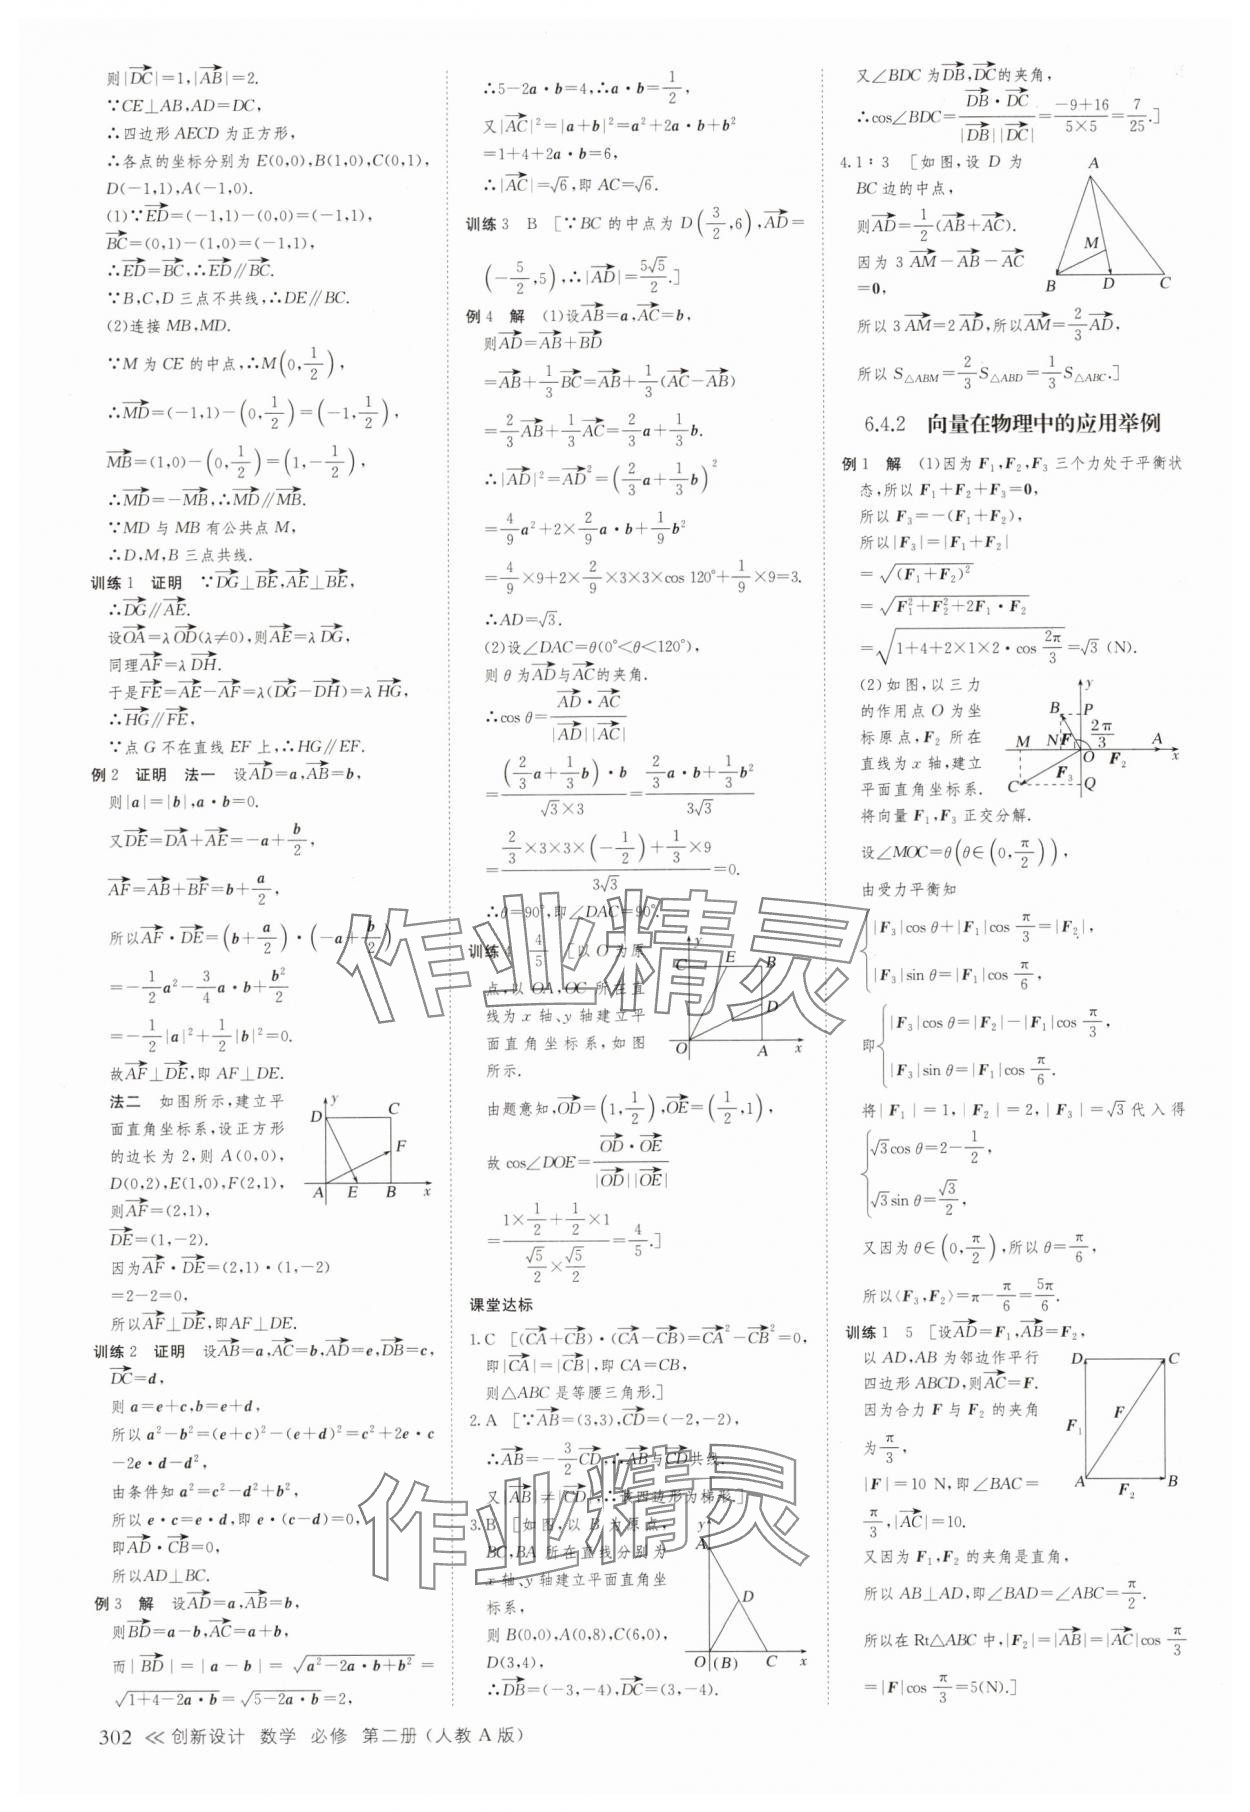 则|DC|=1,|AB|=2.
∵CE⊥AB,AD=DC,
∴四边形AECD为正方形,
∴各点的坐标分别为E(0,0),B(1,0),C(0,1),
D(-1,1),A(-1,0).
(1)∵ED=(-1,1)-(0,0)=(-1,1),
BC=(0,1)-(1,0)=(-1,1),
∴ED=BC,∴ED∥BC.
∵B,C,D三点不共线,∴DE∥BC.
(2)连接MB,MD.
∵M为CE的中点,∴M(0,1/2),
∴MD=(-1,1)-(0,1/2)=(-1,1/2),
MB=(1,0)-(0,1/2)=(1,-1/2),
∴MD=-MB,∴MD∥MB.
∵MD与MB有公共点M,
∴D,M,B三点共线.
训练1 证明 ∵DG⊥BE,AE⊥BE,
∴DG∥AE.
设OA=λOD(λ≠0),则AE=λDG,
同理AF=λDH.
于是FE=AE-AF=λ(DG-DH)=λHG,
∴HG∥FE,
∵点G不在直线EF上,∴HG∥EF.
例2 证明 法一 设AD=a,AB=b,
则|a|=|b|,a·b=0.
又DE=DA+AE=-a+b/2,
AF=AB+BF=b+a/2,
所以AF·DE=(b+a/2)·(-a+b/2)
=-1/2a²-3/4a·b+b²/2
=-1/2|a|²+1/2|b|²=0.
故AF⊥DE,即AF⊥DE.
法二 如图所示,建立平
面直角坐标系,设正方形
的边长为2,则A(0,0),
D(0,2),E(1,0),F(2,1),
则AF=(2,1),
DE=(1,-2).
y
D
C
F
A
E
B
x
因为AF·DE=(2,1)·(1,-2)
=2-2=0,
所以AF⊥DE,即AF⊥DE.
训练2 证明 设AB=a,AC=b,AD=e,DB=c,
DC=d,
则a=e+c,b=e+d,
所以a²-b²=(e+c)²-(e+d)²=c²+2e·c
-2e·d-d²,
由条件知a²=c²-d²+b²,
所以e·c=e·d,即e·(c-d)=0,
即AD·CB=0,
所以AD⊥BC.
例3 解 设AD=a,AB=b,
则BD=a-b,AC=a+b,
而|BD|=|a-b|=√(a²-2a·b+b²)=
√(1+4-2a·b)=√(5-2a·b)=2,
∴5-2a·b=4,∴a·b=1/2,
又|AC|²=|a+b|²=a²+2a·b+b²
=1+4+2a·b=6,
∴|AC|=√6,即AC=√6.
训练3 B [∵BC的中点为D(3/2,6),AD=
(-5/2,5),∴|AD|=5√5/2.]
例4 解 (1)设AB=a,AC=b,
则AD=AB+BD
=AB+1/3BC=AB+1/3(AC-AB)
=2/3AB+1/3AC=2/3a+1/3b.
∴|AD|²=AD²=(2/3a+1/3b)²
=4/9a²+2×2/9a·b+1/9b²
=4/9×9+2×2/9×3×3×cos 120°+1/9×9=3.
∴AD=√3.
(2)设∠DAC=θ(0°<θ<120°),
则θ为AD与AC的夹角.
∴cos θ=AD·AC/|AD||AC|
=(2/3a+1/3b)·b/√3×3=2/3a·b+1/3b²/3√3
=2/3×3×3×(-1/2)+1/3×9/3√3=0.
∴θ=90°,即∠DAC=90°.
训练4 4/5 [以O为原
点,以OA,OC所在直
线为x轴、y轴建立平
面直角坐标系,如图
所示.
y
C
E
B
D
O
A
x
由题意知,OD=(1,1/2),OE=(1/2,1),
故cos∠DOE=OD·OE/|OD||OE|
=1×1/2+1/2×1/√5/2×√5/2=4/5.]
课堂达标
1.C [(CA+CB)·(CA-CB)=CA²-CB²=0,
即|CA|=|CB|,即CA=CB,
则△ABC是等腰三角形.]
2.A [∵AB=(3,3),CD=(-2,-2),
∴AB=-3/2CD,∴AB与CD共线.
又|AB|≠|CD|,∴该四边形为梯形.]
3.B [如图,以B为原点,
BC,BA所在直线分别为
x轴、y轴建立平面直角坐
标系,
则B(0,0),A(0,8),C(6,0),
D(3,4),
y
A
D
O
(B)
C
x
∴DB=(-3,-4),DC=(3,-4).
又∠BDC为DB,DC的夹角,
∴cos∠BDC=DB·DC/|DB||DC|=-9+16/5×5=7/25.]
4.1∶3 [如图,设D为
BC边的中点,
则AD=1/2(AB+AC).
因为3AM-AB-AC
=0,
A
M
B
D
C
所以3AM=2AD,所以AM=2/3AD,
所以S△ABM=2/3S△ABD=1/3S△ABC.]
6.4.2 向量在物理中的应用举例
例1 解 (1)因为F₁,F₂,F₃三个力处于平衡状
态,所以F₁+F₂+F₃=0,
所以F₃=-(F₁+F₂),
所以|F₃|=|F₁+F₂|
=√(F₁+F₂)²
=√(F₁²+F₂²+2F₁·F₂)
=√(1+4+2×1×2·cos 2π/3)=√3 (N).
(2)如图,以三力
的作用点O为坐
标原点,F₂所在
直线为x轴,建立
平面直角坐标系.
y
B
P
F₁
2π/3
M
N
O
A
F₂
x
F₃
C
Q
将向量F₁,F₃正交分解.
设∠MOC=θ(θ∈(0,π/2)),
由受力平衡知
|F₃|cos θ+|F₁|cos π/3=|F₂|,
|F₃|sin θ=|F₁|cos π/6,
即|F₃|cos θ=|F₂|-|F₁|cos π/3,
|F₃|sin θ=|F₁|cos π/6.
将|F₁|=1,|F₂|=2,|F₃|=√3代入得
√3cos θ=2-1/2,
√3sin θ=√3/2,
又因为θ∈(0,π/2),所以θ=π/6,
所以⟨F₃,F₂⟩=π-π/6=5π/6.
训练1 5 [设AD=F₁,AB=F₂,
以AD,AB为邻边作平行
四边形ABCD,则AC=F.
因为合力F与F₂的夹角
为π/3,
|F|=10 N,即∠BAC=
π/3,|AC|=10.
D
C
F₁
F
A
F₂
B
又因为F₁,F₂的夹角是直角,
所以AB⊥AD,即∠BAD=∠ABC=π/2.
所以在Rt△ABC中,|F₂|=|AB|=|AC|cos π/3
=|F|cos π/3=5(N).]
302 ≪ 创新设计 数学 必修 第二册(人教A版)
作业精灵
作业精灵